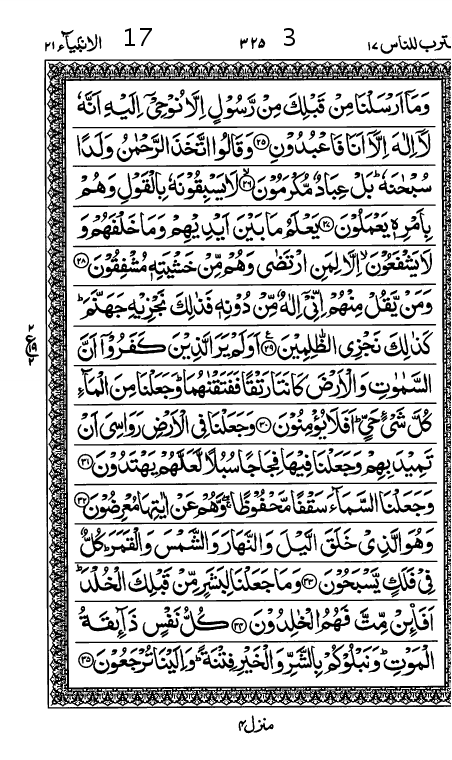 الانبیآء ۲۱ 17 ۳۲۵ 3 ترب للناس ۱۷
وَمَاۤ اَرْسَلْنَا مِنْ قَبْلِكَ مِنْ رَّسُوْلٍ اِلَّا نُوْحِیْۤ اِلَیْهِ اَنَّهٗ
لَاۤ اِلٰهَ اِلَّاۤ اَنَا فَاعْبُدُوْنِ ﴿۲۵﴾ وَقَالُوا اتَّخَذَ الرَّحْمٰنُ وَلَدًا
سُبْحٰنَهٗ ؕ بَلْ عِبَادٌ مُّكْرَمُوْنَ ﴿۲۶﴾ لَا یَسْبِقُوْنَهٗ بِالْقَوْلِ وَهُمْ
بِاَمْرِهٖ یَعْمَلُوْنَ ﴿۲۷﴾ یَعْلَمُ مَا بَیْنَ اَیْدِیْهِمْ وَمَا خَلْفَهُمْ وَ
لَا یَشْفَعُوْنَ ۙ اِلَّا لِمَنِ ارْتَضٰی وَهُمْ مِّنْ خَشْیَتِهٖ مُشْفِقُوْنَ ﴿۲۸﴾
وَمَنْ یَّقُلْ مِنْهُمْ اِنِّیْۤ اِلٰهٌ مِّنْ دُوْنِهٖ فَذٰلِكَ نَجْزِیْهِ جَهَنَّمَ ؕ
كَذٰلِكَ نَجْزِی الظّٰلِمِیْنَ ﴿۲۹﴾ اَوَلَمْ یَرَ الَّذِیْنَ كَفَرُوْۤا اَنَّ
السَّمٰوٰتِ وَالْاَرْضَ كَانَتَا رَتْقًا فَفَتَقْنٰهُمَا ؕ وَجَعَلْنَا مِنَ الْمَآءِ
كُلَّ شَیْءٍ حَیٍّ ؕ اَفَلَا یُؤْمِنُوْنَ ﴿۳۰﴾ وَجَعَلْنَا فِی الْاَرْضِ رَوَاسِیَ اَنْ
تَمِیْدَ بِهِمْ وَجَعَلْنَا فِیْهَا فِجَاجًا سُبُلًا لَّعَلَّهُمْ یَهْتَدُوْنَ ﴿۳۱﴾
وَجَعَلْنَا السَّمَآءَ سَقْفًا مَّحْفُوْظًا ۖۚ وَّهُمْ عَنْ اٰیٰتِهَا مُعْرِضُوْنَ ﴿۳۲﴾
وَهُوَ الَّذِیْ خَلَقَ الَّیْلَ وَالنَّهَارَ وَالشَّمْسَ وَالْقَمَرَ ؕ كُلٌّ
فِیْ فَلَكٍ یَّسْبَحُوْنَ ﴿۳۳﴾ وَمَا جَعَلْنَا لِبَشَرٍ مِّنْ قَبْلِكَ الْخُلْدَ ؕ
اَفَا۠ئِنْ مِّتَّ فَهُمُ الْخٰلِدُوْنَ ﴿۳۴﴾ كُلُّ نَفْسٍ ذَآئِقَةُ
الْمَوْتِ ؕ وَنَبْلُوْكُمْ بِالشَّرِّ وَالْخَیْرِ فِتْنَةً ؕ وَاِلَیْنَا تُرْجَعُوْنَ ﴿۳۵﴾
منزل ۴